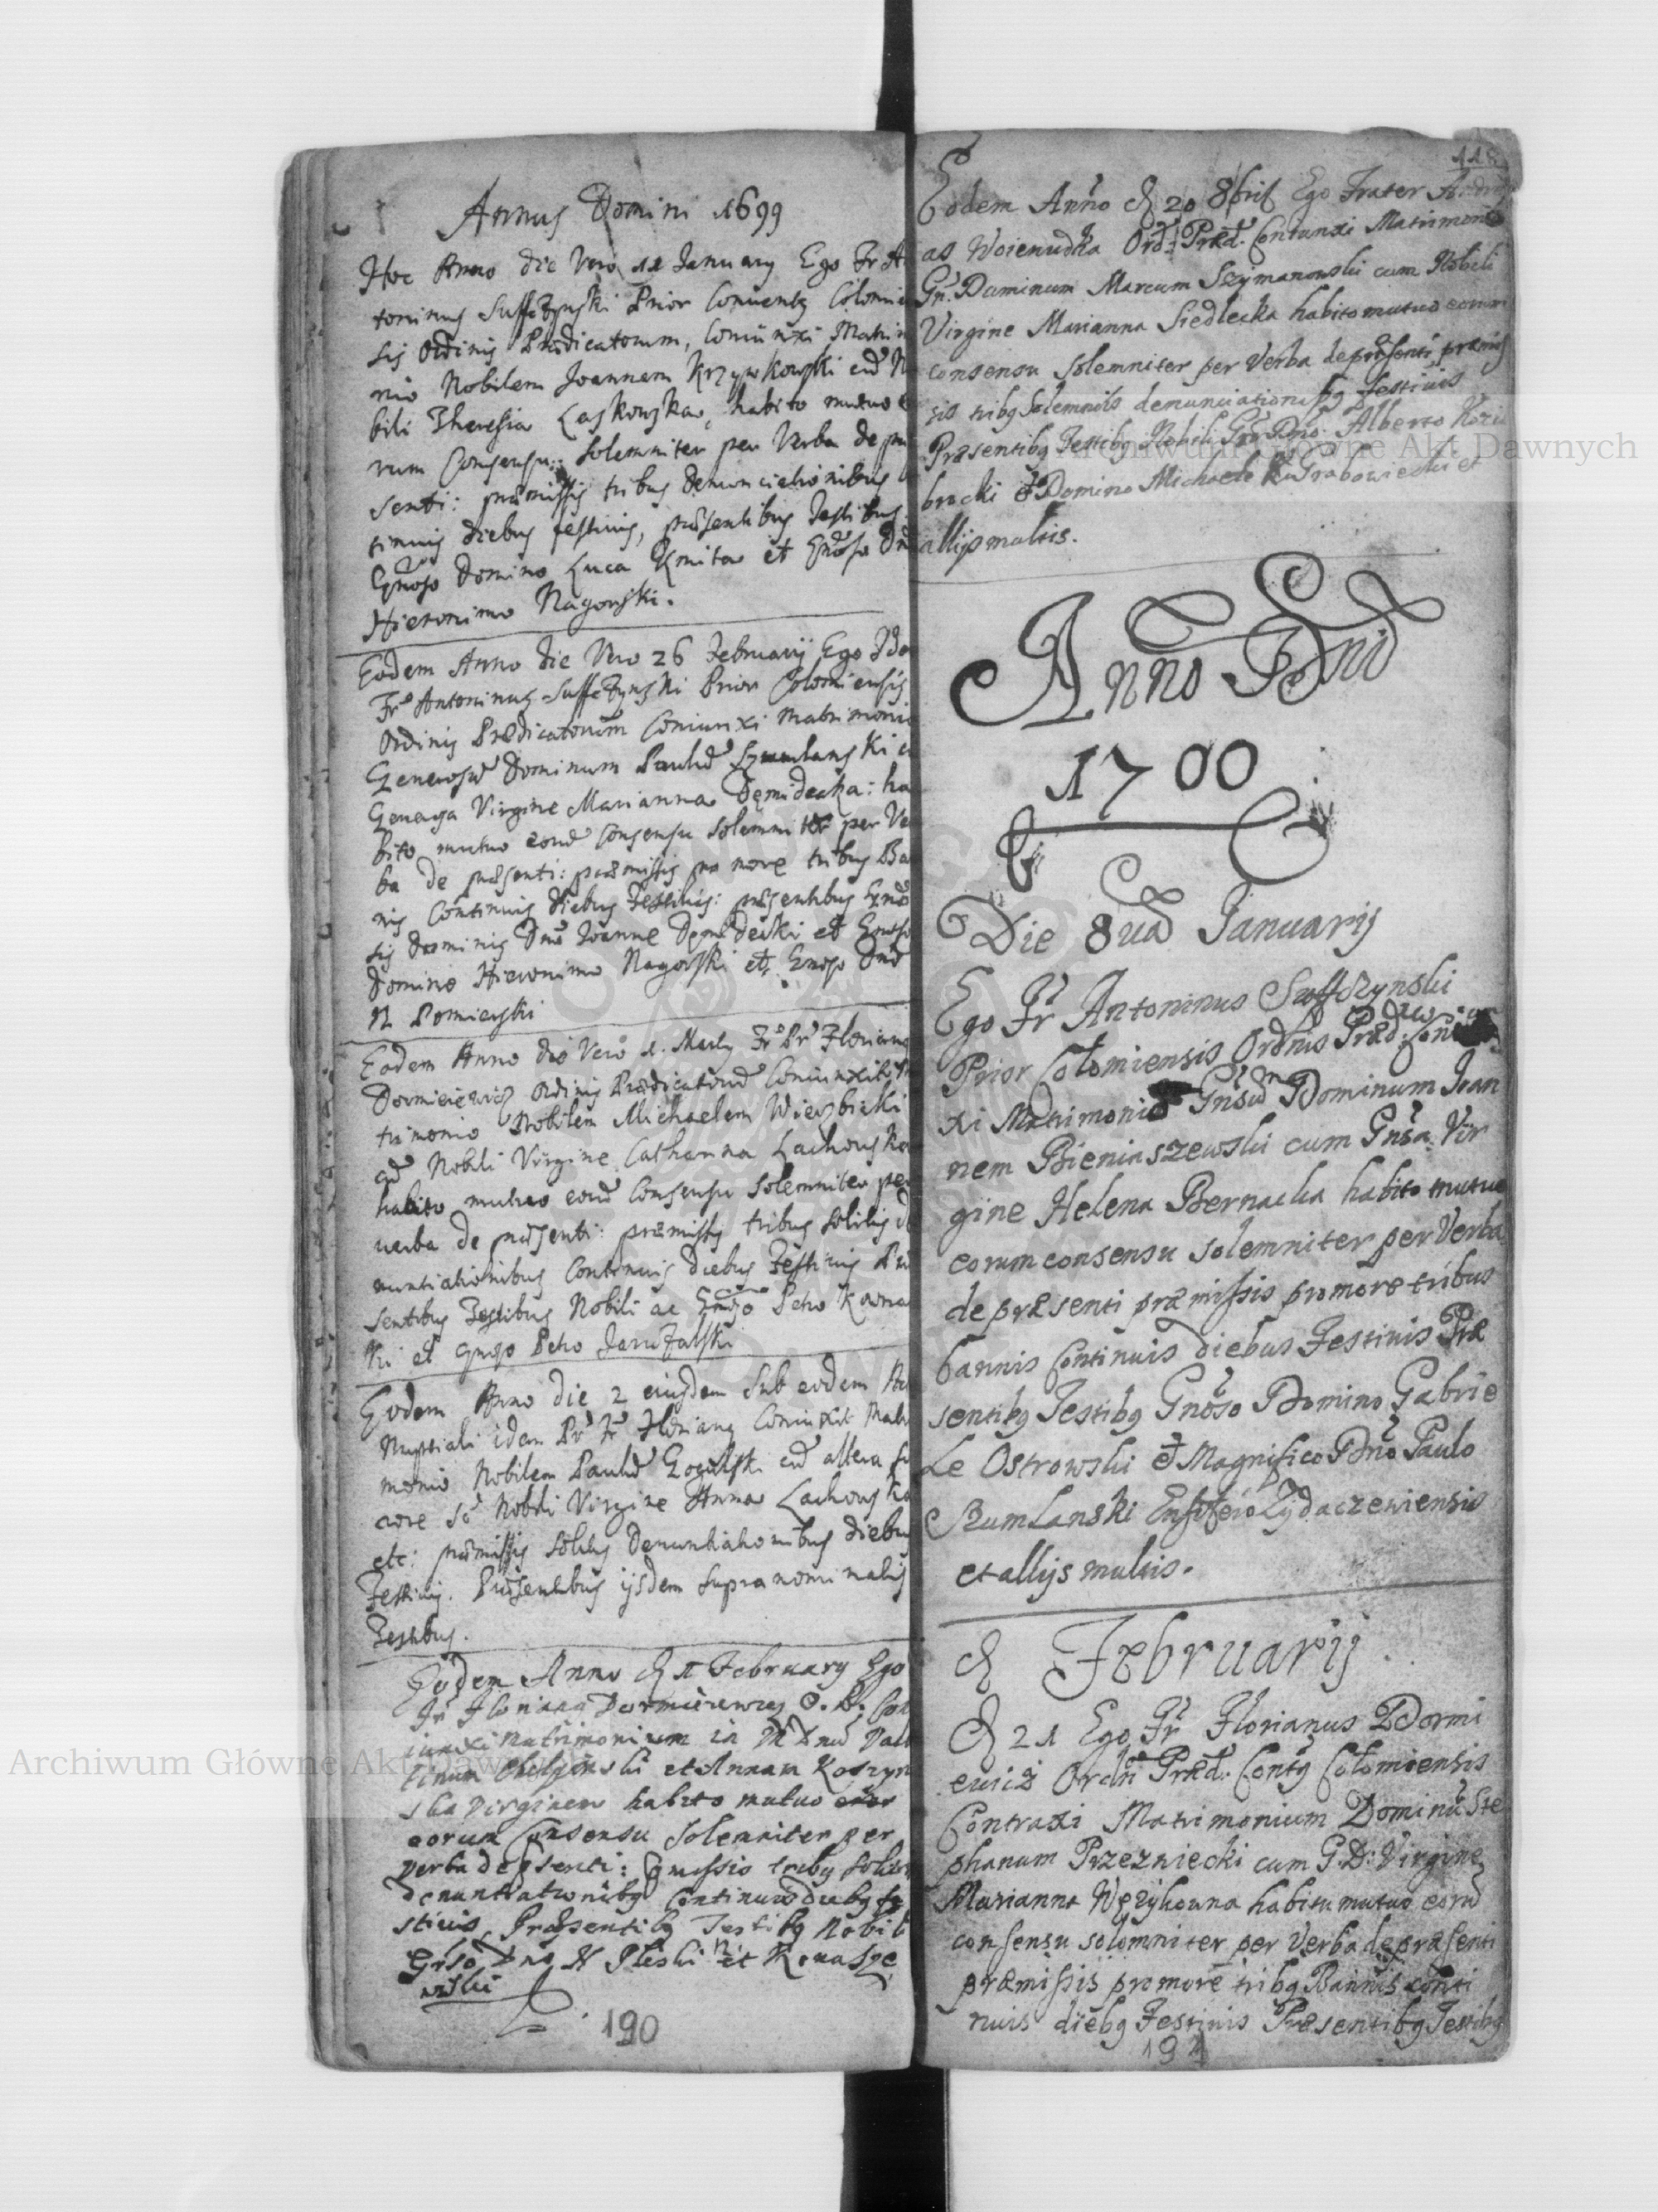 Annus Domini 1699
Hoc Anno die Vero 11 January Ego Fr An
toninus Suffczynski Prior Conventq Colomie
sis Ordinis Prædicatorum, Coniunxi Matrim
nio Nobilem Joannem Krzywkowski cu No
bili Theresia Laskowska, habito mutuo eo
rum Consensu: Solemniter per Verba de præ
senti: præmissis tribus denunciationibus
tinuis diebus festivis, præsentibus Testibus
Gnoso Domino Luca Kmita et Gnoso Dno
Hieronimo Nagorski.
Eodem Anno die Vero 26 Februarij Ego Idem
Fr Antoninus Suffczynski Prior Colomiensis
Ordinis Prædicatorum Coniunxi Matrimonio
Generosu Dominum Paulu Szumlanski c
Generosa Virgine Marianna Demidecka: ha
bito mutuo eoru Consensu Solemniter per Ver
ba de præsenti: præmissis pro more tribus Ba
nis Continuis diebus Festivis: præsentibus Gno
sis Dominis Dno Joanne Demidecki et Gnoso
Domino Hieronimo Nagorski et Gnoso Dno
N Pomierski
Eodem Anno die Vero 1. Marty Fr Pr Florianus
Dormiciewicz Ordinis Prædicatoru Coniunxit M
trimonio Nobilem Michaelem Wierzbicki
cu Nobili Virgine Catharina Lachowska
habito mutuo eoru Consensu Solemniter per
verba de præsenti: præmissis tribus solitis de
nuntiationibus Continuis diebus Festivis Præ
sentibus Testibus Nobili ac Gnoso Petro Kowna
ki et Gnoso Petro Jaruzalski
Eodem Anno die 2 eiusdem Sub eodem Actu
Nuptiali idem Pr Fr Florianq Coniunxit Matri
monio Nobilem Paulu Gogulski cu altera so
rore Sc Nobili Virgine Anna Lachowska
etc: præmissis solitis Denuntiationibus diebus
Festivis. Præsentibus ijsdem supra nominatis
Testibus.
Eodem Anno d 11 February Ego
Fr Florianq Dormiciewicz O. P. Con
iunxi Matrimonium in M Dnu Vale
tinum et Annam Koszyn
ska Virginem habito mutuo
eorum Consensu Solemniter per
verba de psenti: pmissis tribq solitis
denuntiationibq Continuis diebq fe
stivis Præsentibq Testibq Nobili
Grso Dno N Pleski et N. Kouasze
wski
190
118
Eodem Anno d 20 8bris Ego Frater Andre
as Woienudka Ord: Præd. Coniunxi Matrimonio
Gn. Dominum Marcum Szymanowski cum Nobili
Virgine Marianna Siedlecka habito mutuo eorum
consensu solemniter per Verba de præsenti præmis
sis tribq solemnibs denunciationibq festivis
Præsentibq Testibq Nobili Gso Dno Alberto Kozie
brocki et Domino Michaele Grabowiecki et
allijs multis.
Anno Dni
1700
Die 8va Januarij
Ego Fr Antoninus Suffczynski
Prior Colomiensis Ordinis Præd: Coniun
xi Matrimonio Gnsu Dominum Joan
nem Bieniaszewski cum Gnsa Vir
gine Helena Bernacka habito mutuo
eorum consensu solemniter per Verba
de præsenti præmissis pro more tribus
bannis Continuis diebus Festivis Præ
sentibq Testibq Gnoso Domino Gabrie
le Ostrowski et Magnifico Dno Paulo
Szumlanski Ensifero Zydaczeviensis
et allijs multis.
d Februarij
d 21 Ego Fr Florianus Dormi
ewicz Ordn Præd: Contq Colomiensis
Contraxi Matrimonium Dominu Ste
phanum Przezniecki cum G.D: Virgine
Marianna Wezykowna habitu mutuo eoru
consensu solomniter per Verba de præsenti
præmissis pro more tribq Bannis conti
nuis diebq Festivis Præsentibq Testibq
191
Archiwum Główne Akt Dawnych
Archiwum Główne Akt Dawnych